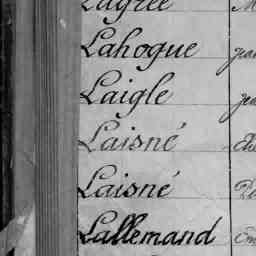 Lagrée
Lahogue
Laigle
Laisné
Laisné
Lallemand